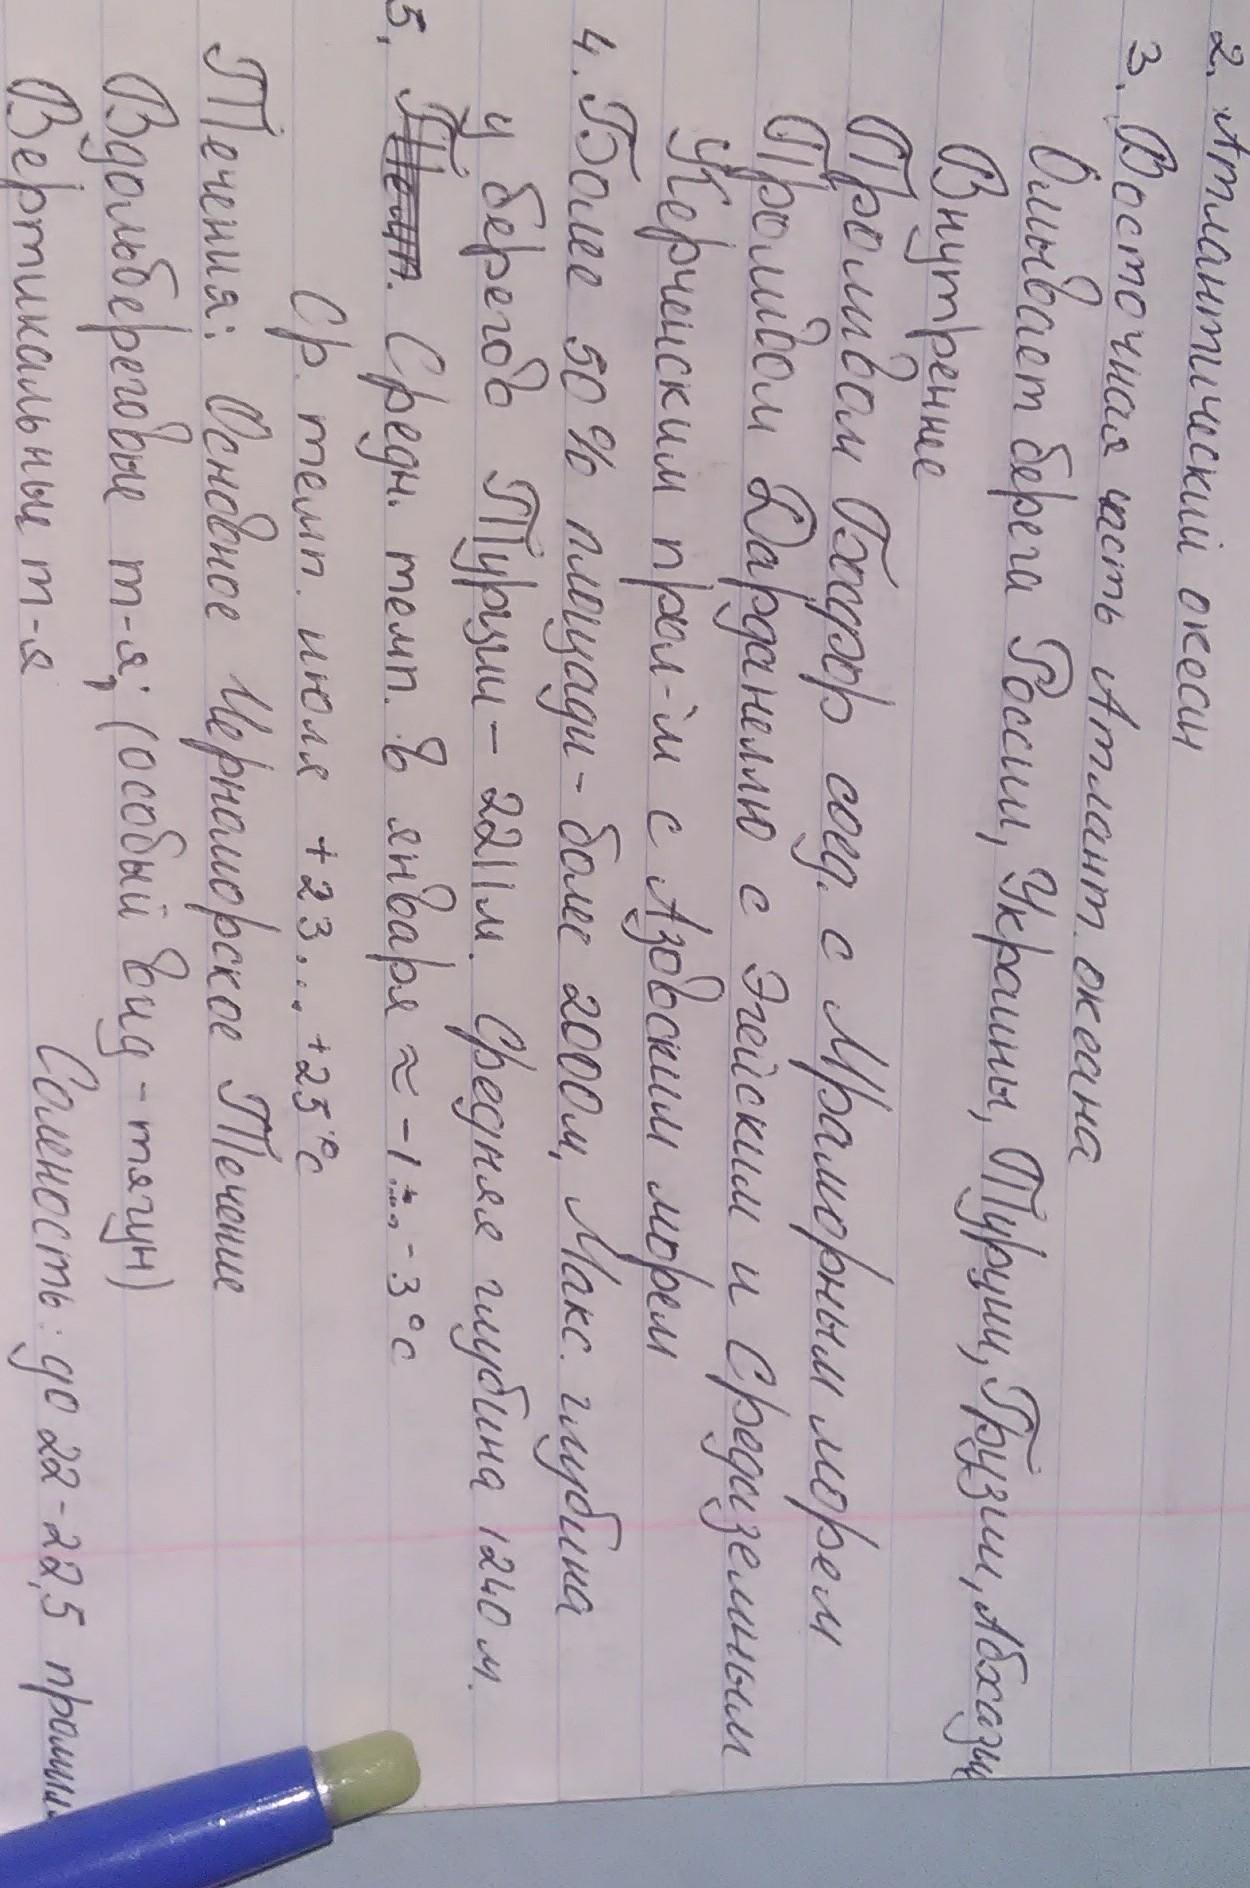 2. Атлантический океан
3. Восточная часть Атлант. океана
Омывает берега России, Украины, Турции, Грузии, Абхазии
Внутренне
Проливом Босфор соед. с Мраморным морем
Проливом Дарданеллю с Эгейским и Средиземным
Керченским прол-м с Азовским морем
4. Более 50% площади - более 2000м, Макс. глубина
у берегов Турции - 2211м. Средняя глубина 1240 м.
5. Средн. темп. в январа ≈ -1... -3°С
Ср. темп. июля +23... +25°С
Течения: Основное Черноморское Течение
Вдольбереговые т-я; (особый вид - тягун)
Вертикальные т-я Соленость: до 22-22,5 промил